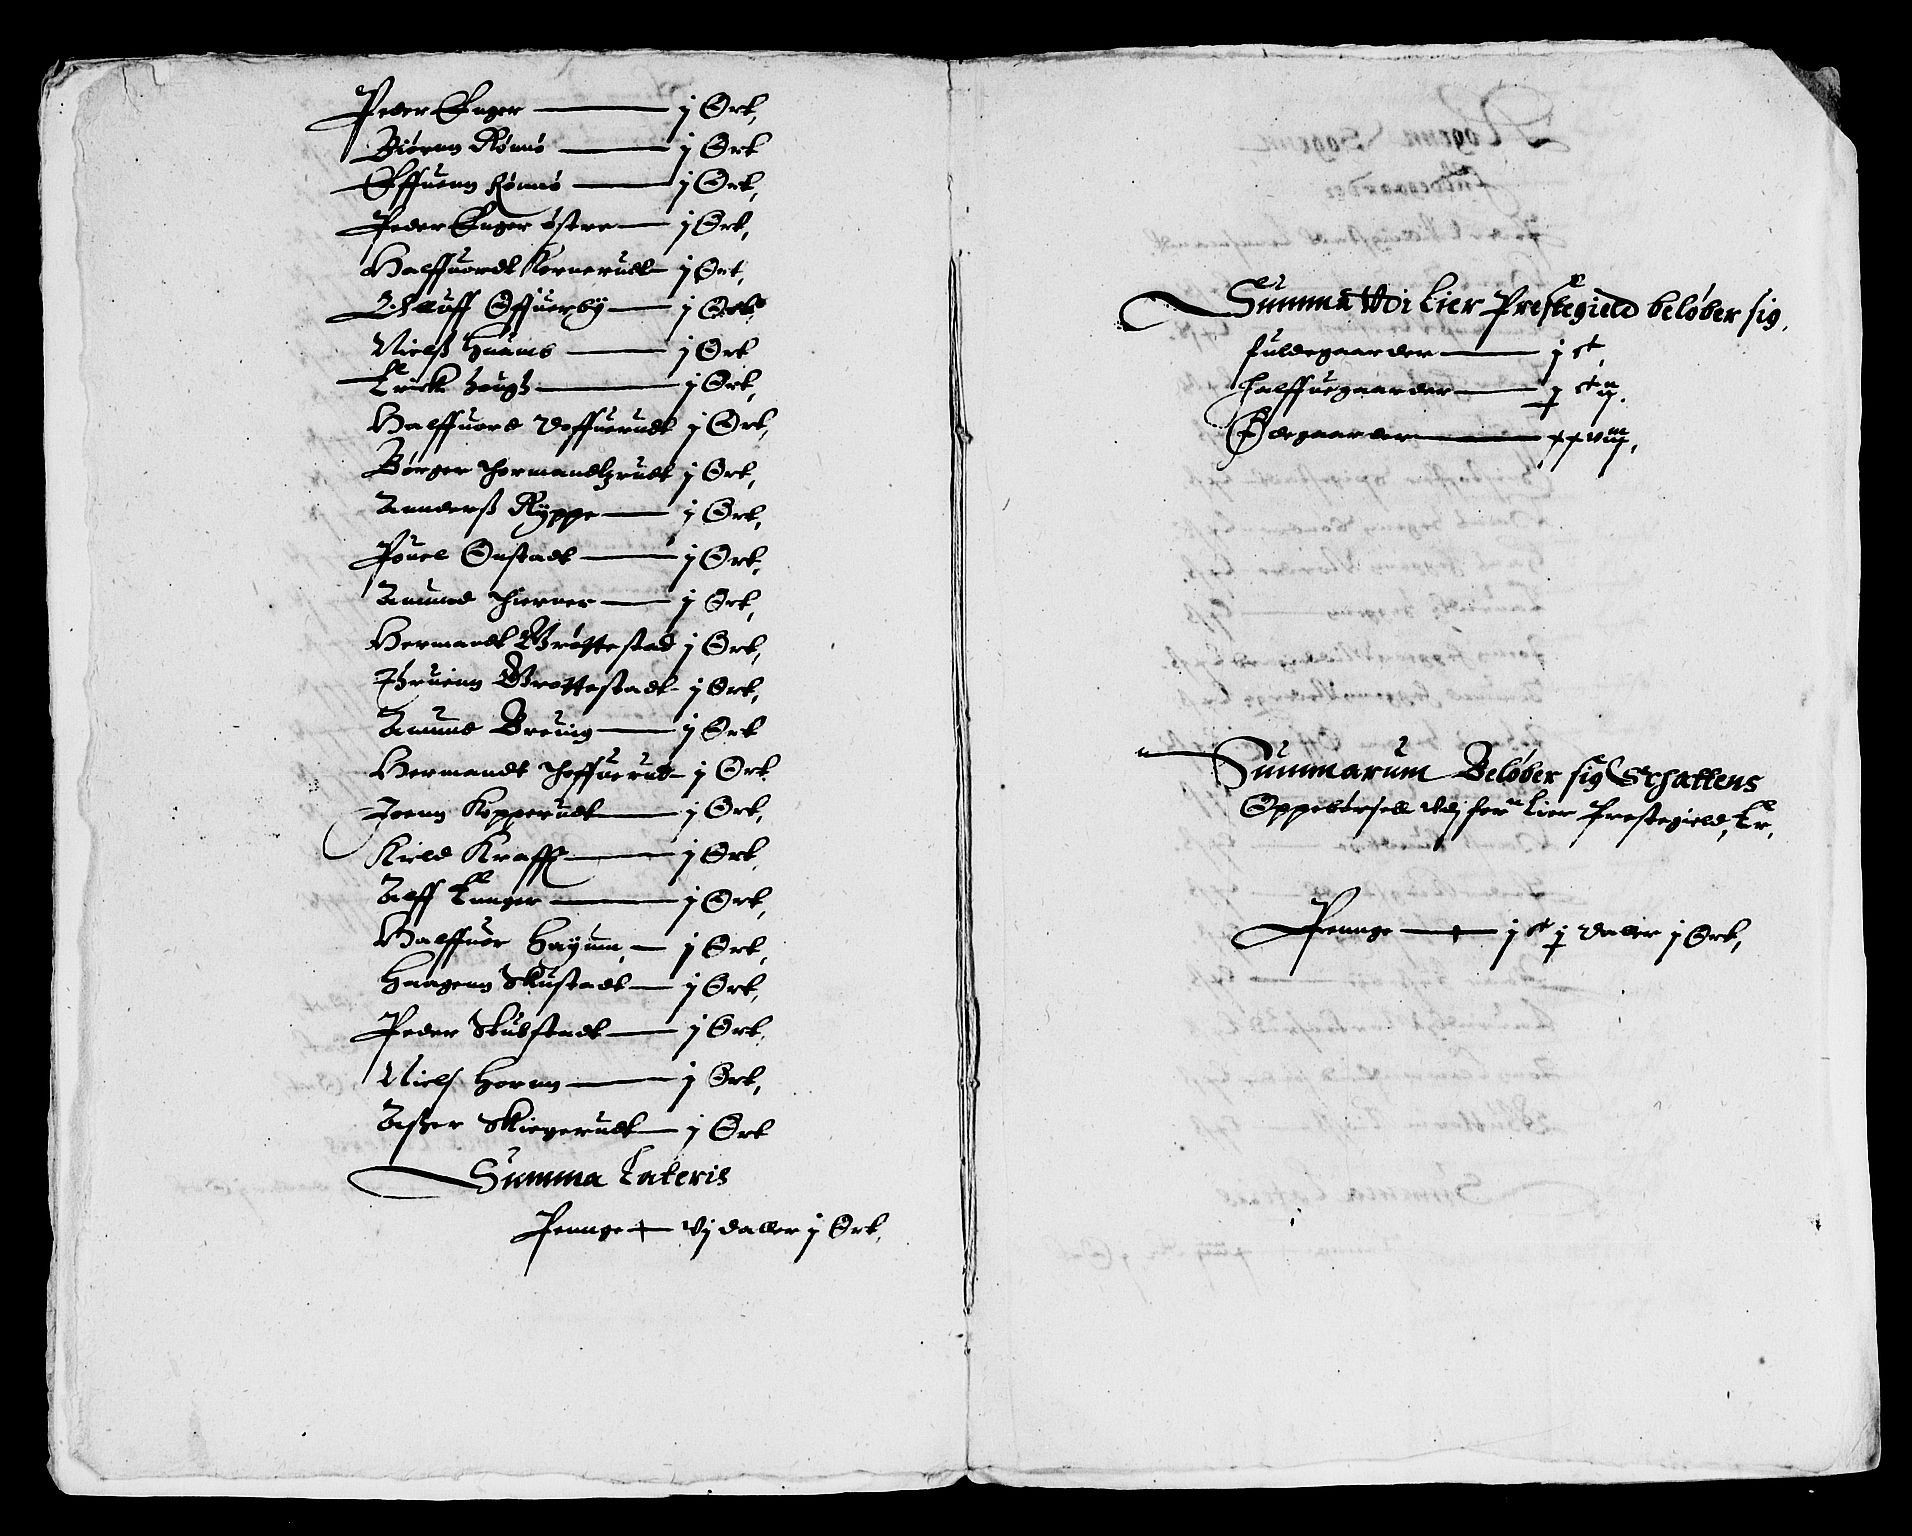 Peder Enger — j Ort,
Biørnn Rønnø — j Ort
Effuenn Rønnø — j Ort,
Peder Enger østre — j Ort,
Halffuordt Kornerudt — j Ort,
Olluff Offuerby — j Ort
Nielß — j Ort
Erick Haugß — j Ort,
Halffuord Doffuerudt j Ort,
Børger Thormandtzrudt j Ort,
Annderß Ryppe — j Ort,
Pouel Onstadt — j Ort,
Amund Thierner — j Ort,
Hermandt Brøttestad j Ort,
Brottestadt j Ort,
Amund Breuig — j Ort
Hermandt Thoffuerud j Ort,
Joenn Kopperudt — j Ort,
Kield Krafft — j Ort,
Alff Langer — j Ort,
Halffuor — j Ort,
Haagenn Skustadt — j Ort,
Peder Skustadt — j Ort,
Niels Hornn — j Ort,
Asßer Skiegerudt — j Ort
Summa Lateris
Pennge — vj daller j Ort,
Summa Vdi Lier Prestegield beløber sig,
fuldegaarder — j
halffuegaarder —
Ødegaarder — xxviij,
Summarum Beløber sig Schattens
Oppebørsell vdj for: Lier Prestegield, Er,
Pennge — j daller j Ort,